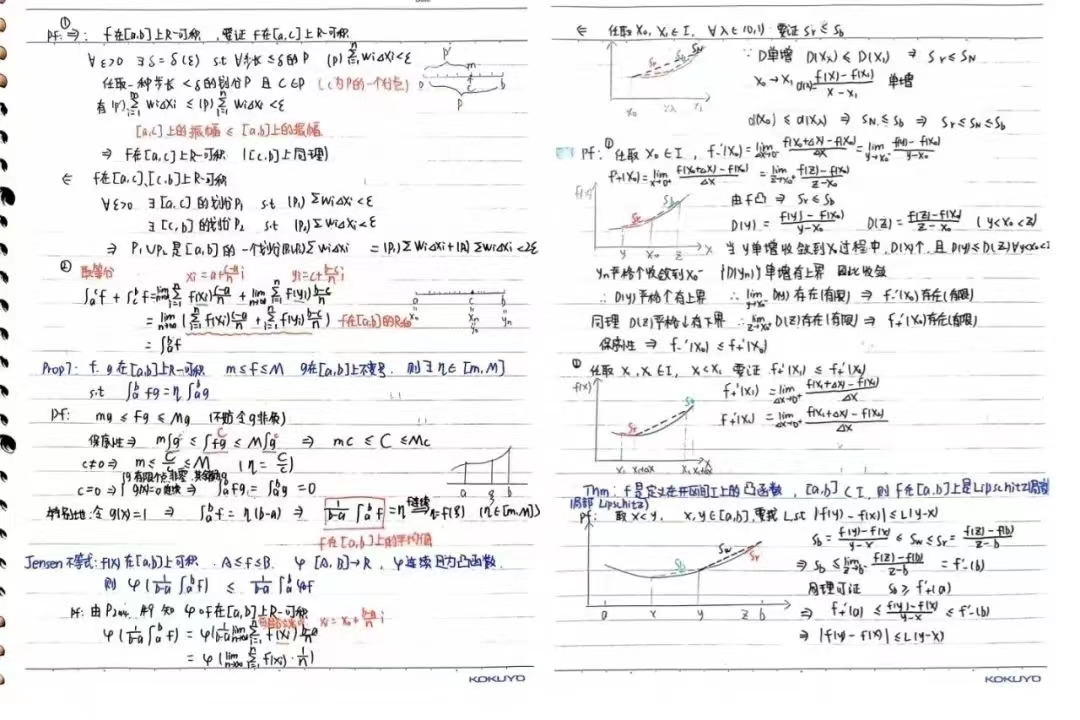 ①
Pf: ⇒: f在[a,b]上R-可积, 要证 f在[a,c]上R-可积
∀ε>0 ∃δ=δ(ε) s.t ∀步长≤δ的P (P)∑ⁿᵢ₌₁wᵢΔxᵢ<ε
任取一种步长<δ的划分P 且 c∈P (c为P的一个分点)
有(P')∑ᵐᵢ₌₁wᵢΔxᵢ ≤ (P)∑ⁿᵢ₌₁wᵢΔxᵢ<ε
[a,c]上的振幅 ≤ [a,b]上的振幅
⇒ f在[a,c]上R-可积 ([c,b]上同理)
⇐ f在[a,c],[c,b]上R-可积
∀ε>0 ∃[a,c]的划分P₁ s.t (P₁)∑wᵢΔxᵢ<ε
∃[c,b]的划分P₂ s.t (P₂)∑wᵢΔxᵢ<ε
⇒ P₁∪P₂是[a,b]的一个划分 (P₁∪P₂)∑wᵢΔxᵢ = (P₁)∑wᵢΔxᵢ+(P₂)∑wᵢΔxᵢ<2ε
② 取等分 xᵢ=a+(c-a)/n i yᵢ=c+(b-c)/n i
∫ₐᶜf + ∫꜀ᵇf = lim n→∞ ∑ⁿᵢ₌₁f(xᵢ)(c-a)/n + lim n→∞ ∑ⁿᵢ₌₁f(yᵢ)(b-c)/n
= lim n→∞ (∑ⁿᵢ₌₁f(xᵢ)(c-a)/n + ∑ⁿᵢ₌₁f(yᵢ)(b-c)/n) f在[a,b]的
= ∫ₐᵇf
Prop7: f.g在[a,b]上R-可积 m≤f≤M g在[a,b]上不变号, 则∃η∈[m,M]
s.t ∫ₐᵇfg=η∫ₐᵇg
Pf: mg≤fg≤Mg (不妨令g非负)
保序性⇒ m∫g≤∫fg≤M∫g ⇒ mc≤C≤Mc
c≠0⇒ m≤C/c≤M (η=C/c)
c=0⇒ ⇒ ∫ₐᵇfg=∫ₐᵇg=0
特别地:令g(x)=1 ⇒ ∫ₐᵇf=η(b-a) ⇒ 1/(b-a)∫ₐᵇf=η f连续 η=f(ξ) (η∈[m,M])
f在[a,b]上的平均值
Jensen不等式: f(x)在[a,b]上可积. A≤f≤B. φ [A,B]→R, φ连续且为凸函数,
则 φ(1/(b-a)∫ₐᵇf) ≤ 1/(b-a)∫ₐᵇφ∘f
Pf: 由 知 φ∘f在[a,b]上R-可积
xᵢ=x₀+(b-a)/n i
φ(1/(b-a)∫ₐᵇf) = φ(1/(b-a) lim n→∞ ∑ⁿᵢ₌₁f(xᵢ)(b-a)/n)
= φ(lim n→∞ ∑ⁿᵢ₌₁f(xᵢ)·1/n)
KOKUYO
⇐ 任取x₀,x₁∈I, ∀λ∈(0,1) 要证 Sr≤Sb
∵ D单增 D(xλ)≤D(x₁) ⇒ Sr≤SN
x₀→x₁ d(x)=(f(x)-f(x₁))/(x-x₁) 单增
d(x₀)≤d(xλ) ⇒ SN≤Sb ⇒ Sr≤SN≤Sb
Pf: ① 任取x₀∈I, f₋'(x₀)=lim Δx→0⁻ (f(x₀+Δx)-f(x₀))/Δx = lim y→x₀⁻ (f(y)-f(x₀))/(y-x₀)
f₊'(x₀)=lim x→0⁺ (f(x₀+Δx)-f(x₀))/Δx = lim z→x₀⁺ (f(z)-f(x₀))/(z-x₀)
由f凸 ⇒ Sr≤Sb
D(y)=(f(y)-f(x₀))/(y-x₀) D(z)=(f(z)-f(x₀))/(z-x₀) (y<x₀<z)
当y单增收敛到x₀过程中, D(y)个, 且D(y)≤D(z) ∀y<x₀<z
yₙ严格个收敛到x₀⁻ {D(yₙ)}单增有上界 因此收敛
∴ D(y)严格个有上界 ∴ lim y→x₀⁻ D(y)存在(有限) ⇒ f₋'(x₀)存在(有限)
同理 D(z)严格↓有下界 ∴ lim z→x₀⁺ D(z)存在(有限) ⇒ f₊'(x₀)存在(有限)
保序性 ⇒ f₋'(x₀)≤f₊'(x₀)
② 任取x₁,x₂∈I, x₁<x₂, 要证 f₊'(x₁)≤f₊'(x₂)
f₊'(x₁)=lim Δx→0⁺ (f(x₁+Δx)-f(x₁))/Δx
f₊'(x₂)=lim Δx→0⁺ (f(x₂+Δx)-f(x₂))/Δx
Thm: f是定义在开区间I上的凸函数, [a,b]⊂I, 则f在[a,b]上是Lipschitz函数
(局部Lipschitz)
Pf: 取x<y, x,y∈[a,b], 要找L s.t |f(y)-f(x)|≤L(y-x)
Sb=(f(y)-f(x))/(y-x) ≤ Sw ≤ Sr=(f(z)-f(b))/(z-b)
⇒ Sb≤lim z→b⁻ (f(z)-f(b))/(z-b) = f₋'(b)
同理可证 Sb≥f₊'(a)
⇒ f₊'(a)≤(f(y)-f(x))/(y-x)≤f₋'(b)
⇒ |f(y)-f(x)|≤L(y-x)
KOKUYO